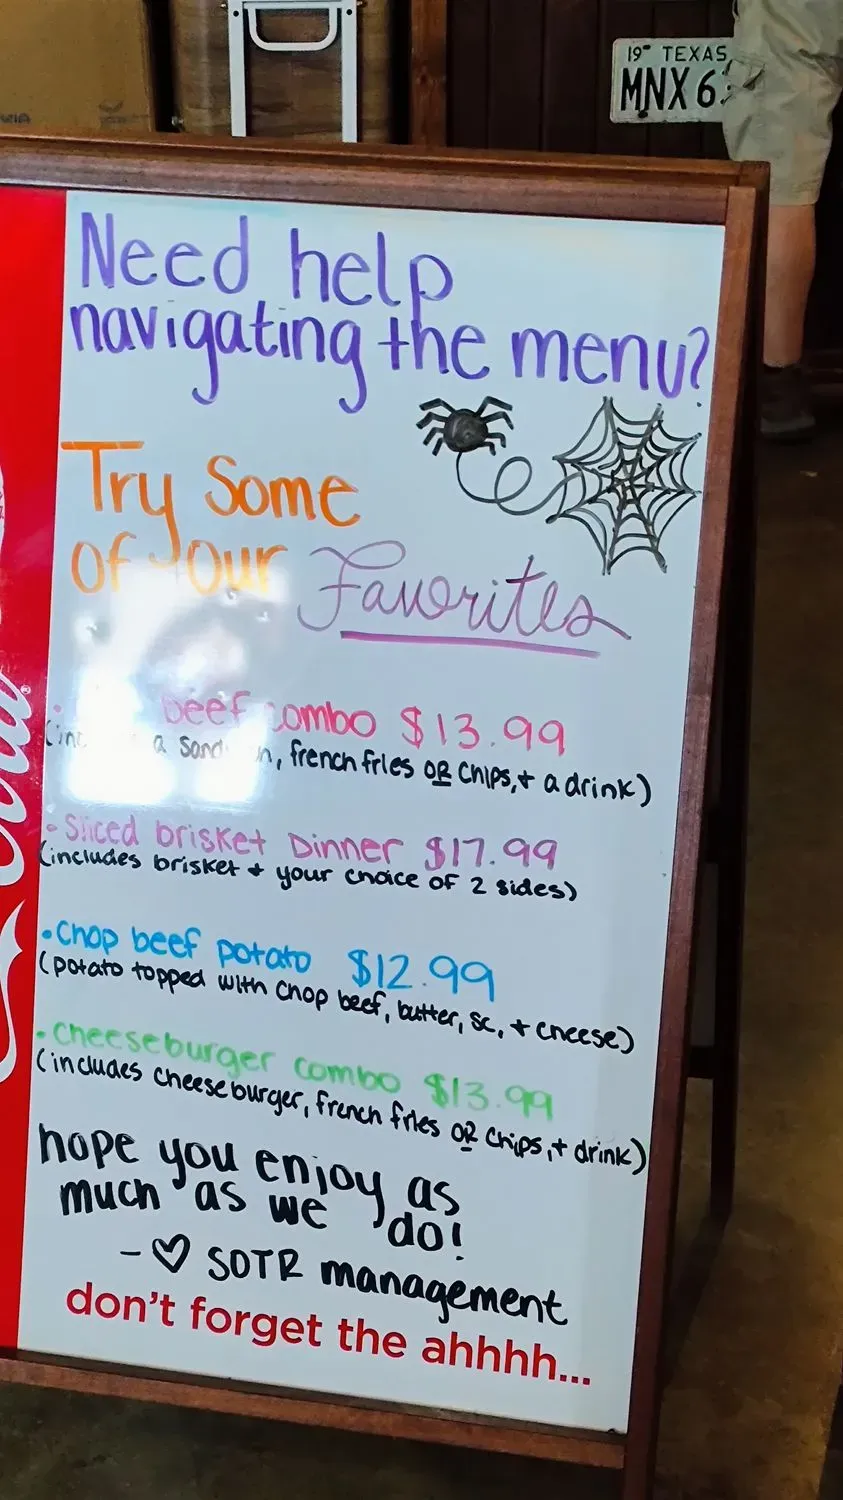 19 TEXAS
MNX 6
Need help
navigating the menu?
Try Some
of our Favorites
beef combo $13.99
a sand, french fries OR chips, + a drink)
- Sliced brisket Dinner $17.99
(includes brisket + your choice of 2 sides)
• Chop beef potato $12.99
(potato topped with chop beef, butter, sc, + cheese)
• cheeseburger combo $13.99
(includes cheeseburger, french fries OR chips, + drink)
hope you enjoy as
much as we do!
- ♡ SOTR management
don't forget the ahhhh...